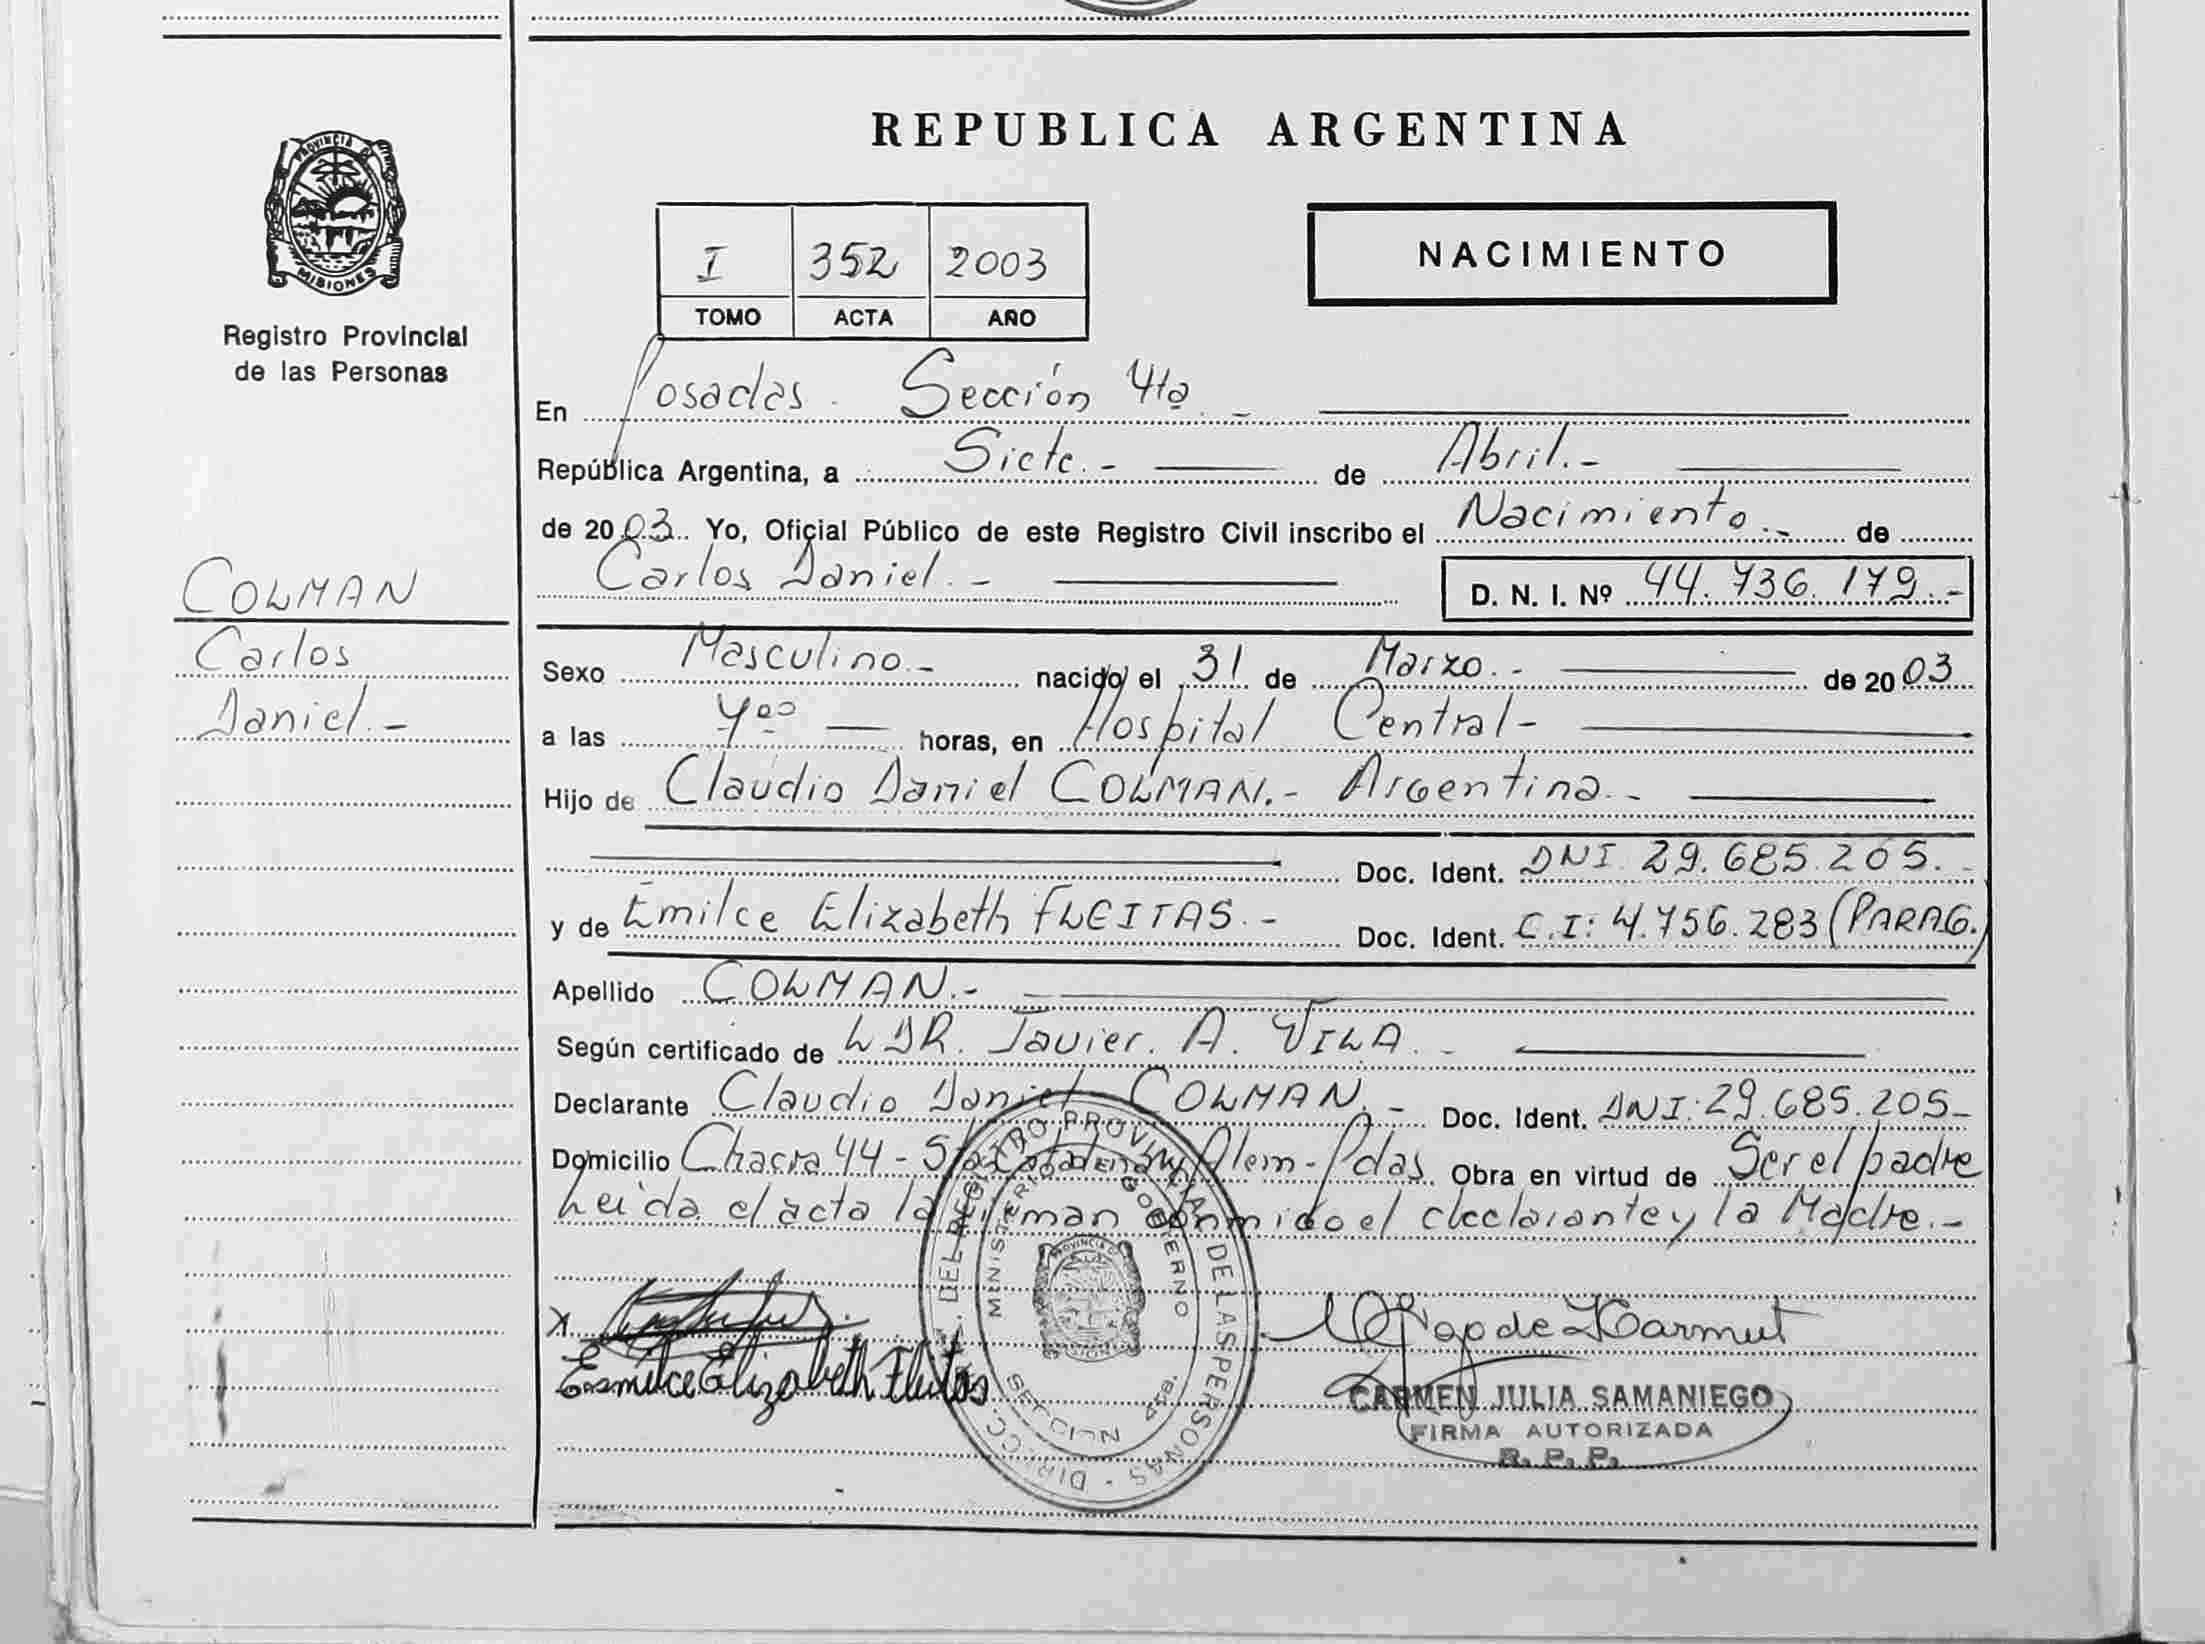 REPUBLICA ARGENTINA
PROVINCIA DE
MISIONES
Registro Provincial
de las Personas
I 352 2003
TOMO ACTA AÑO
NACIMIENTO
En Posadas. Sección 4ta. -
República Argentina, a Siete.- de Abril.-
de 2003. Yo, Oficial Público de este Registro Civil inscribo el Nacimiento.- de
Carlos Daniel.- D. N. I. Nº 44.736.179.-
COLMAN
Carlos
Daniel.-
Sexo Masculino.- nacido el 31 de Marzo.- de 2003
a las 4 horas, en Hospital Central-
Hijo de Claudio Daniel COLMAN.- Argentina.-
Doc. Ident. DNI 29.685.205.-
y de Emilce Elizabeth FLEITAS.- Doc. Ident. C.I: 4.756.283 (PARAG.)
Apellido COLMAN.-
Según certificado de L DR. Javier. A. VILA.-
Declarante Claudio Daniel COLMAN.- Doc. Ident. DNI: 29.685.205-
Domicilio Chacra 44 - Alem-Pdas Obra en virtud de Ser el padre
Leida el acta la firman conmigo el declarante y la Madre.-
Emilce Elizabeth Fleitas
DEL REGISTRO PROVINCIAL DE LAS PERSONAS - DIRECC.
MINISTERIO DE GOBIERNO
SECCION 4ta.
CARMEN JULIA SAMANIEGO
FIRMA AUTORIZADA
R. P. P.